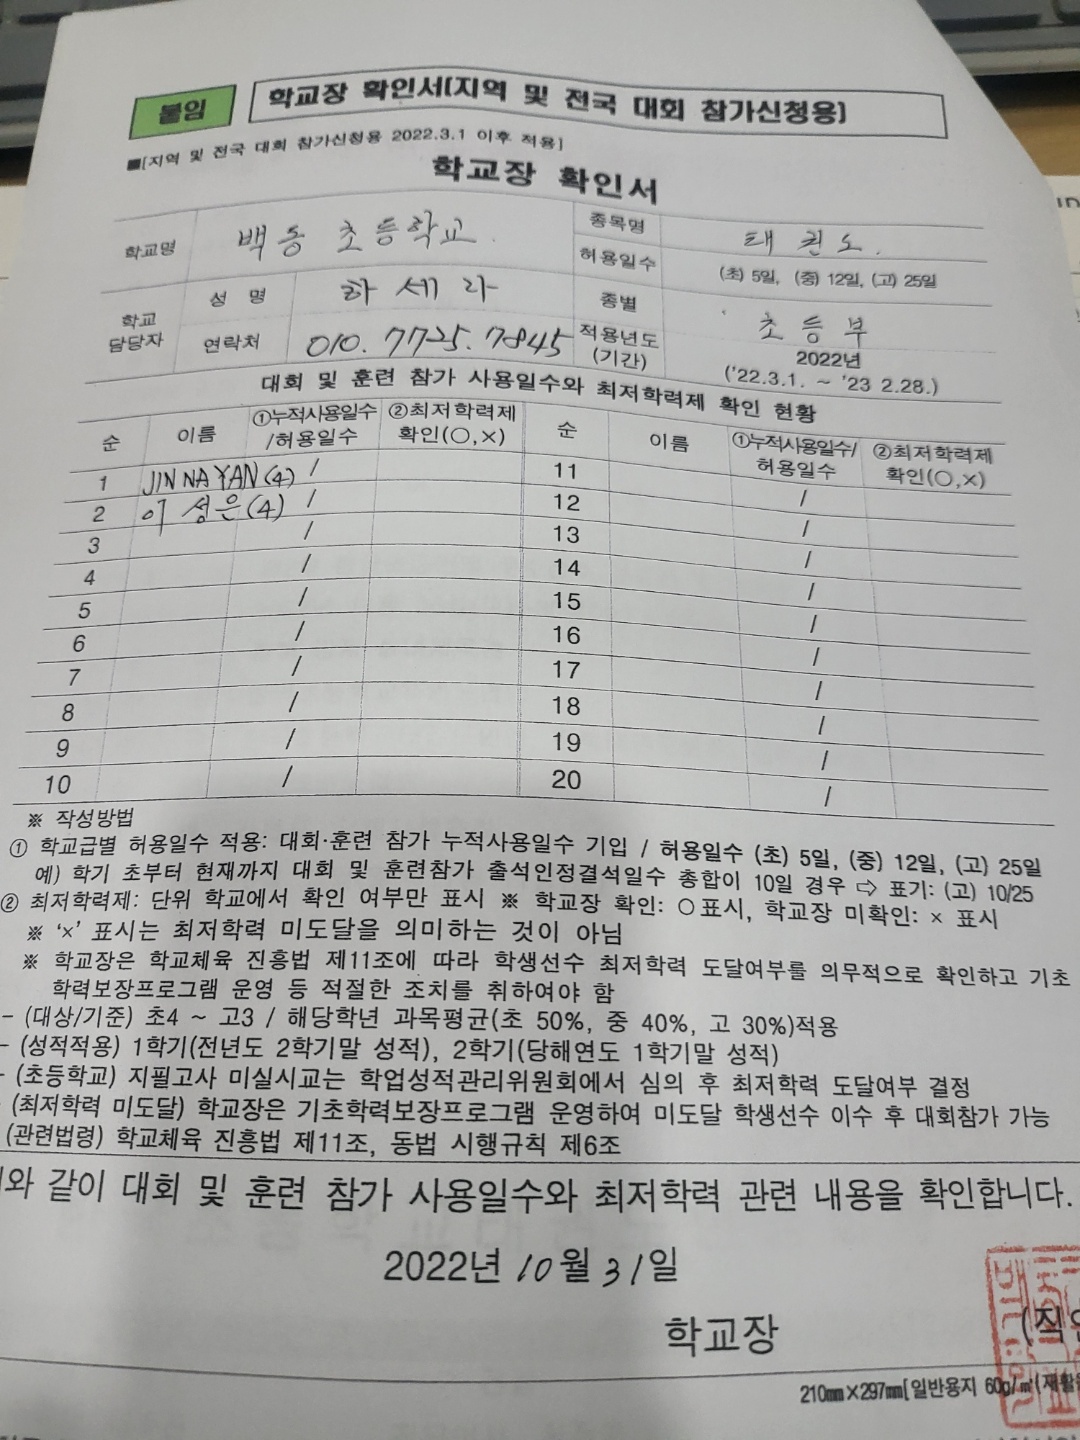 붙임 학교장 확인서(지역 및 전국 대회 참가신청용)
■[지역 및 전국 대회 참가신청용 2022.3.1 이후 적용]
학교장 확인서
학교명 백동 초등학교 종목명 태권도
허용일수 (초) 5일, (중) 12일, (고) 25일
학교 담당자 성 명 하세라 종별 초등부
연락처 010. 7725. 7845 적용년도 (기간) 2022년 ('22.3.1. ~ '23 2.28.)
대회 및 훈련 참가 사용일수와 최저학력제 확인 현황
순 이름 ①누적사용일수/허용일수 ②최저학력제 확인(○,×) 순 이름 ①누적사용일수/허용일수 ②최저학력제 확인(○,×)
1 JIN NA YAN (4) / 11 /
2 이성은 (4) / 12 /
3 / 13 /
4 / 14 /
5 / 15 /
6 / 16 /
7 / 17 /
8 / 18 /
9 / 19 /
10 / 20 /
※ 작성방법
① 학교급별 허용일수 적용: 대회·훈련 참가 누적사용일수 기입 / 허용일수 (초) 5일, (중) 12일, (고) 25일
예) 학기 초부터 현재까지 대회 및 훈련참가 출석인정결석일수 총합이 10일 경우 ⇨ 표기: (고) 10/25
② 최저학력제: 단위 학교에서 확인 여부만 표시 ※ 학교장 확인: ○표시, 학교장 미확인: × 표시
※ '×' 표시는 최저학력 미도달을 의미하는 것이 아님
※ 학교장은 학교체육 진흥법 제11조에 따라 학생선수 최저학력 도달여부를 의무적으로 확인하고 기초
학력보장프로그램 운영 등 적절한 조치를 취하여야 함
- (대상/기준) 초4 ~ 고3 / 해당학년 과목평균(초 50%, 중 40%, 고 30%)적용
- (성적적용) 1학기(전년도 2학기말 성적), 2학기(당해연도 1학기말 성적)
- (초등학교) 지필고사 미실시교는 학업성적관리위원회에서 심의 후 최저학력 도달여부 결정
(최저학력 미도달) 학교장은 기초학력보장프로그램 운영하여 미도달 학생선수 이수 후 대회참가 가능
(관련법령) 학교체육 진흥법 제11조, 동법 시행규칙 제6조
와 같이 대회 및 훈련 참가 사용일수와 최저학력 관련 내용을 확인합니다.
2022년 10월 31일
학교장 (직인
210㎜×297㎜[일반용지 60g/㎡(재활용